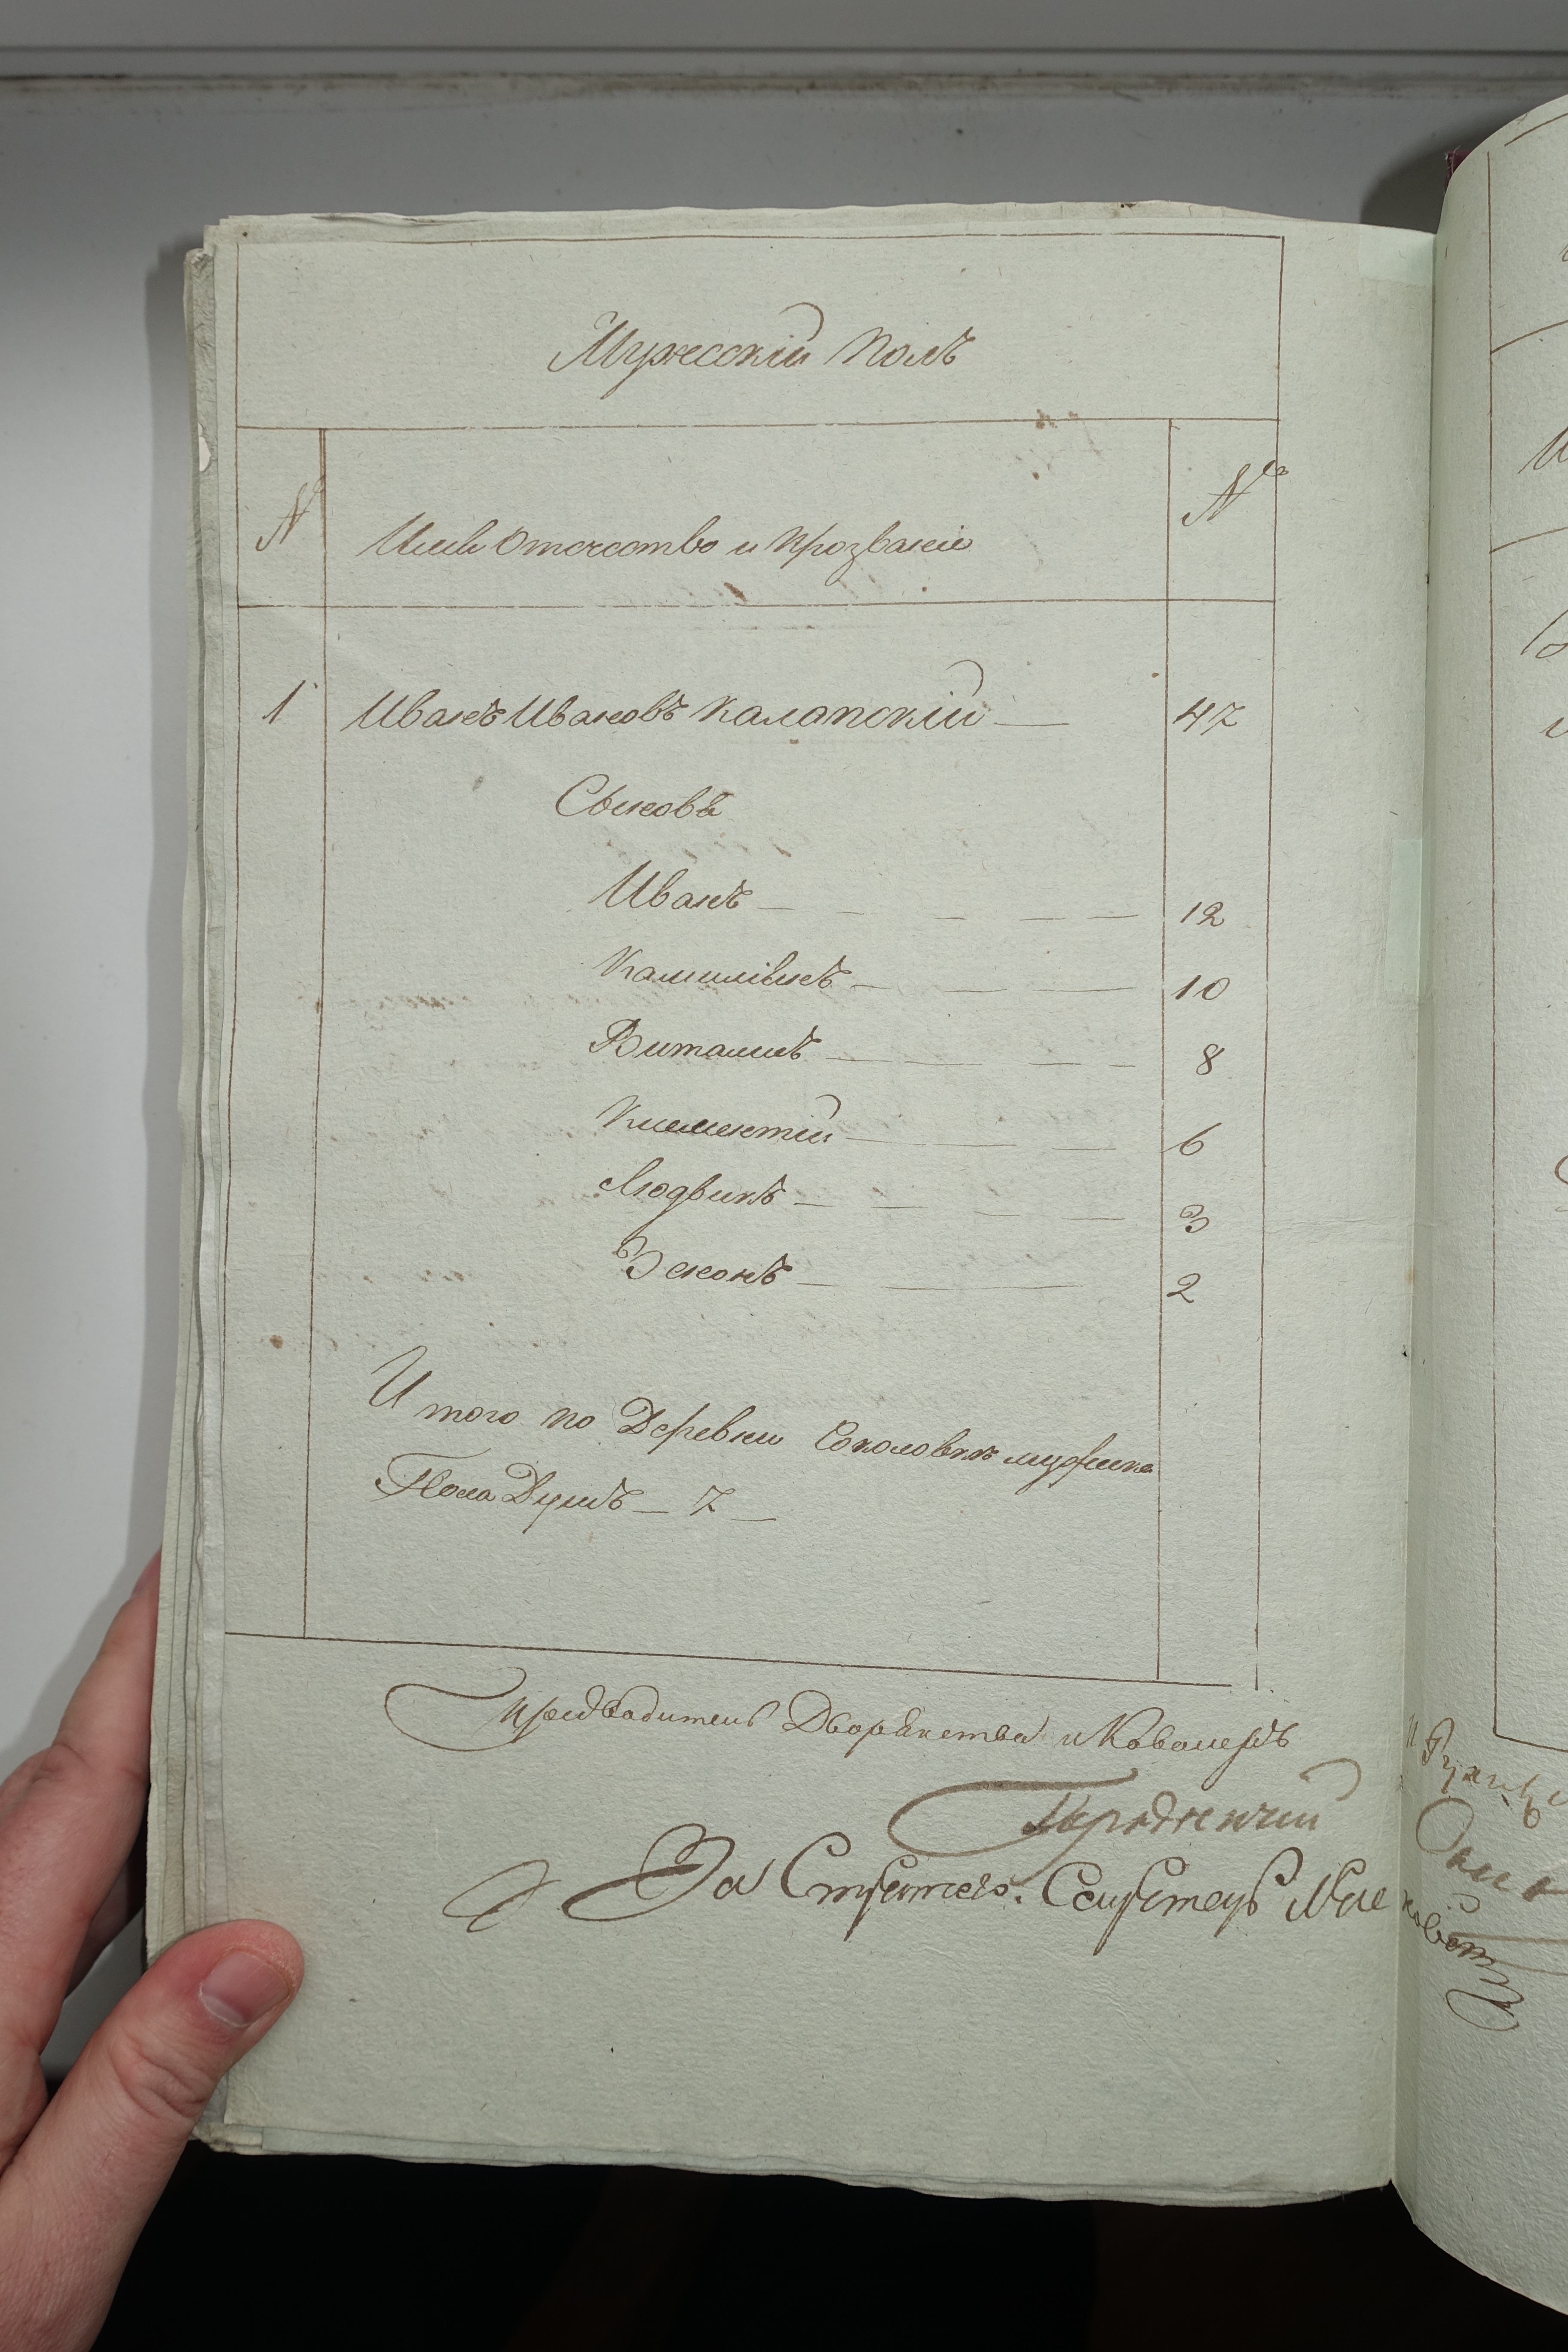 Мужесскій полъ
№
Имя Отечество и прозваніе
№
1 Иванъ Ивановъ Калапскій — 47
Сыновья
Иванъ — 12
Камиліянъ — 10
Виталисъ — 8
Клементій — 6
Людвикъ — 3
Зенонъ — 2
И того по Деревни Соколовкъ мужска
Пола Душъ — 7 —
предводитель Дворянства и Кавалеръ
За Секретаръ